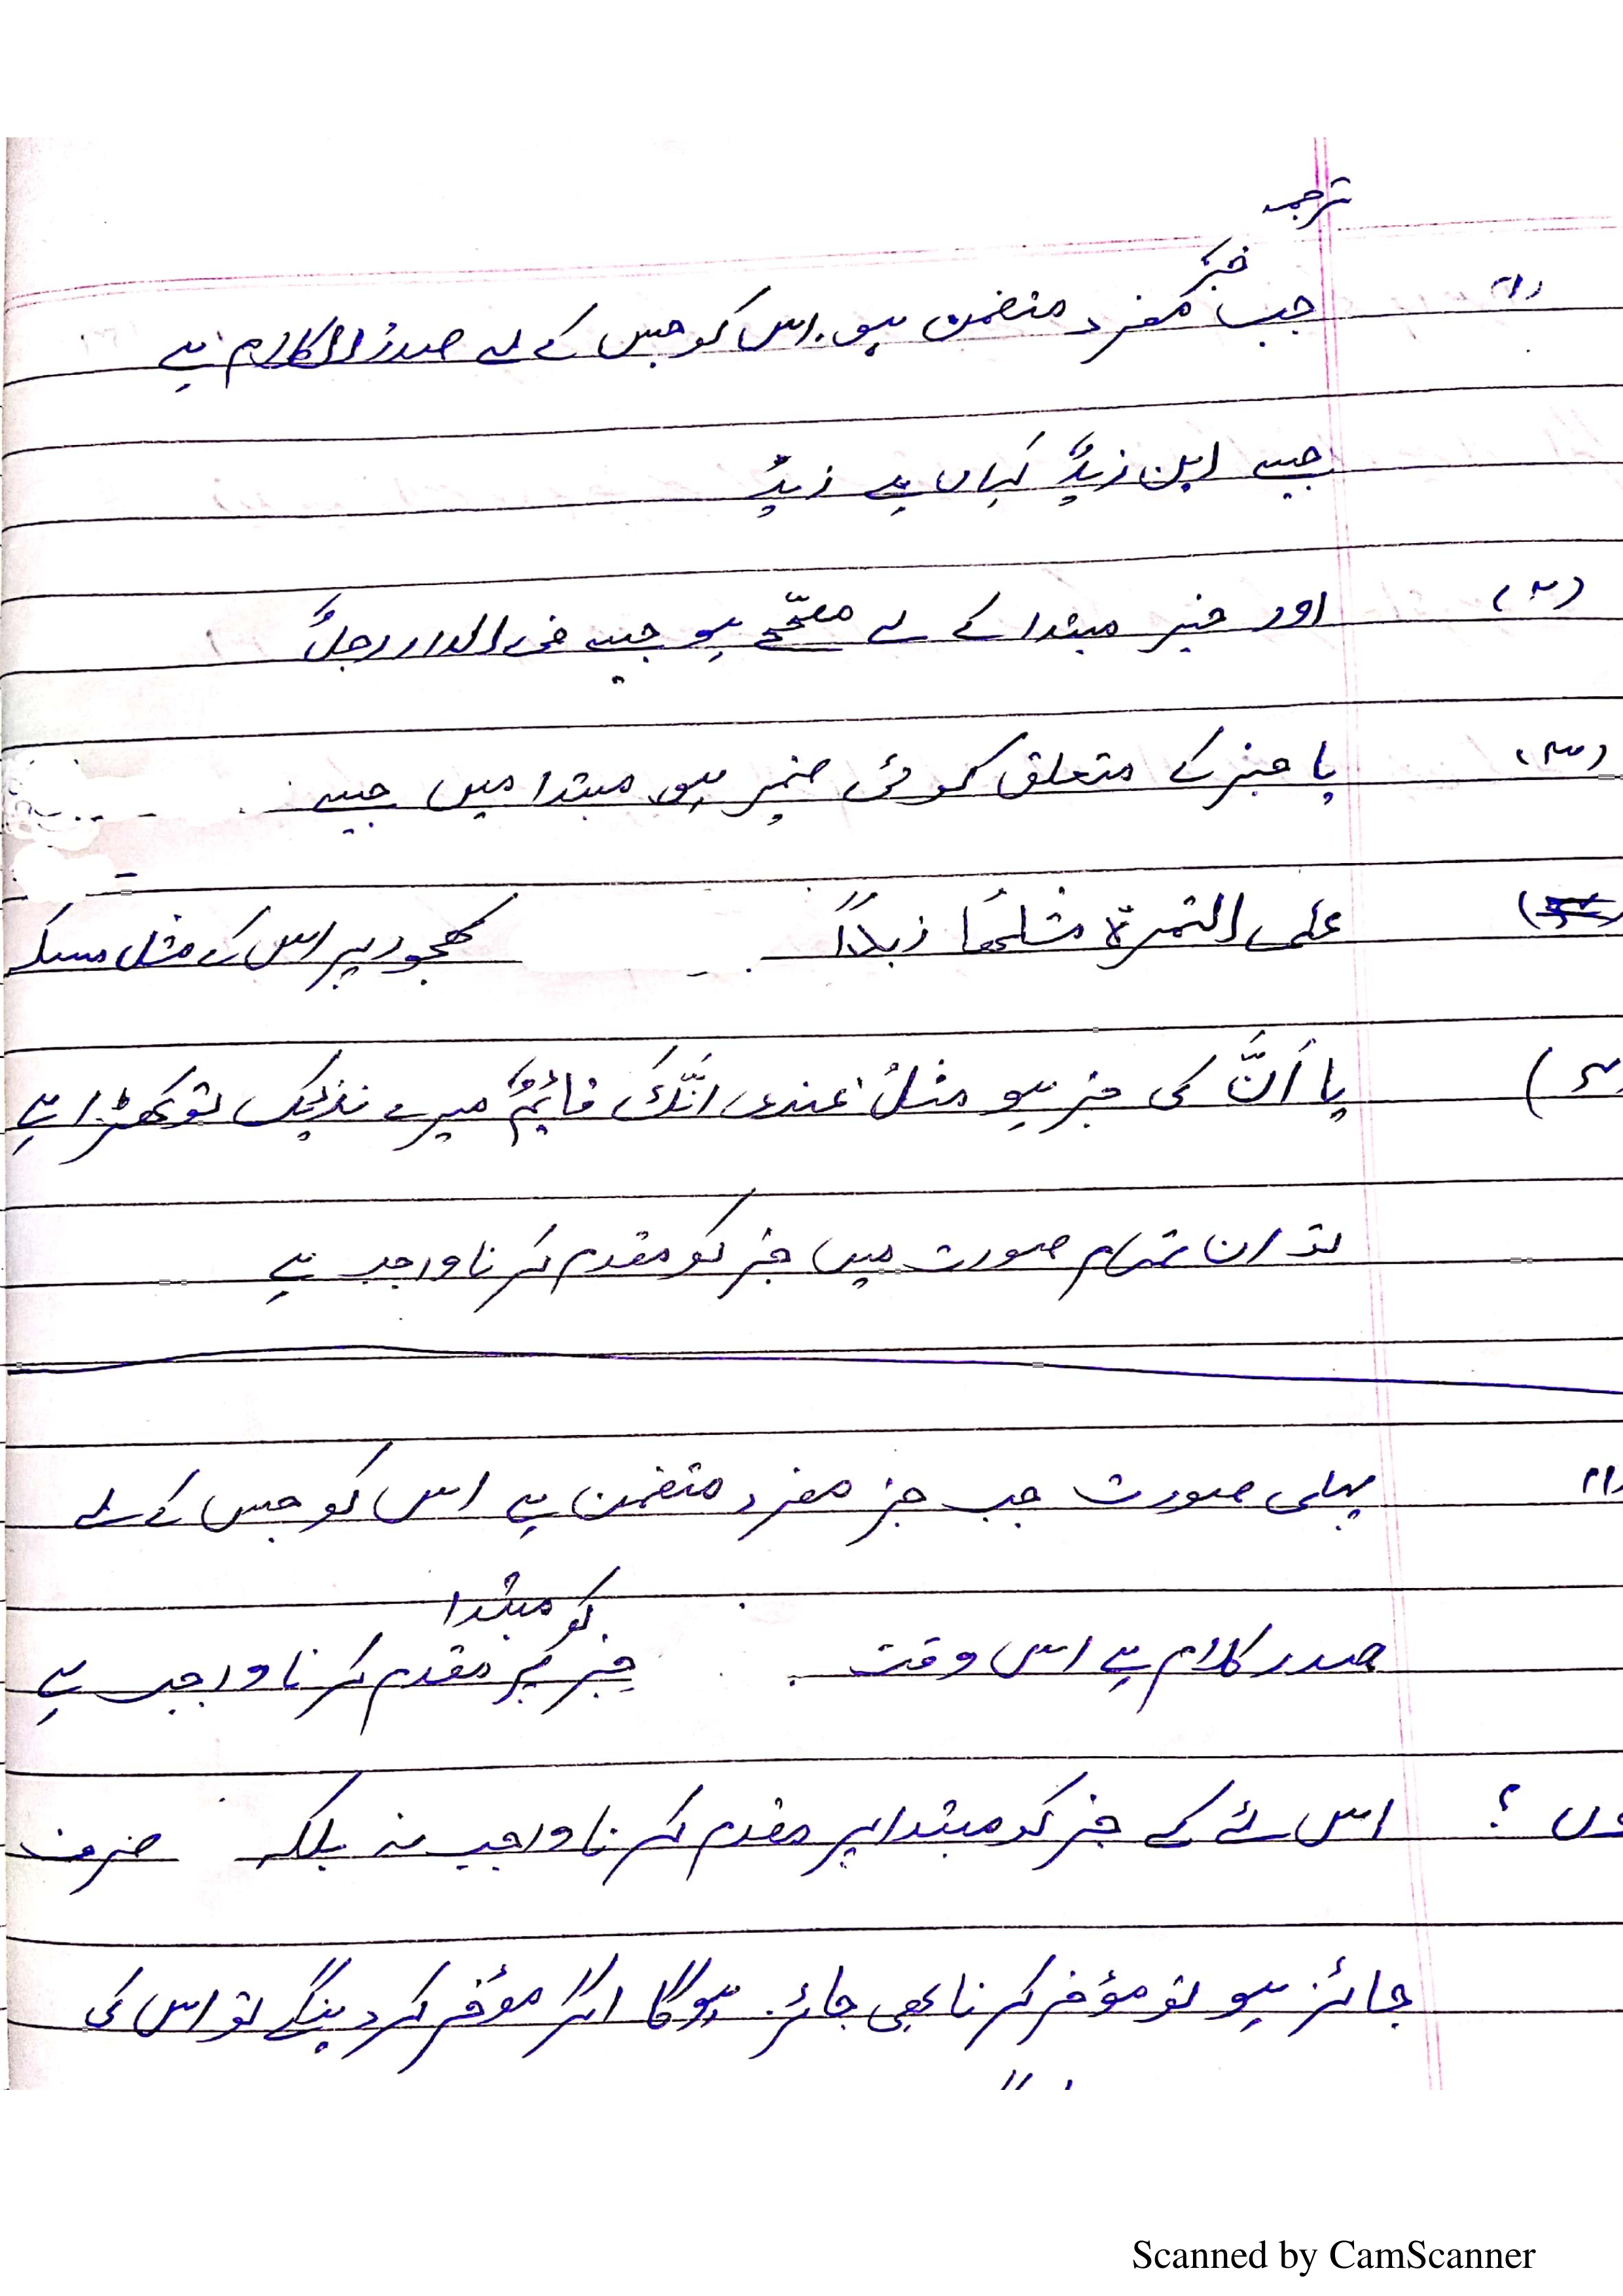 ترجمہ
خبر
(۱) جب مفرد متضمن ہو اس کو جس کے لۓ صدر الکلام ہے
جیسے این زیدٌ کہاں ہے زیدٌ
(۲) اور خبر مبتدا کے لۓ مصحّح ہو جیسے فی الدار رجلٌ
(۳) یا خبر کے متعلق کوئی ضمیر ہو مبتدا میں جیسے
علی التمرۃ مثلھا زبدًا کھجور پر اس کے مثل مسکہ
(۴) یا اَنَّ کی خبر ہو مثلُ عندی انّکَ قائِمٌ میرے نزدیک تو کھڑا ہے
تو ان تمام صورت میں خبر کو مقدم کرنا واجب ہے
(۱) پہلی صورت جب خبر مفرد متضمن ہے اس کو جس کے لۓ
کو مبتدا
صدر کلام ہے اس وقت خبر پر مقدم کرنا واجب ہے
وں ؟ اس لئے کے خبر کو مبتدا پر مقدم کرنا واجب نہ بلکہ صرف
جائز ہو تو مؤخر کرنا بھی جائز ہوگا اگر مؤخر کر دینگے تو اس کی
Scanned by CamScanner